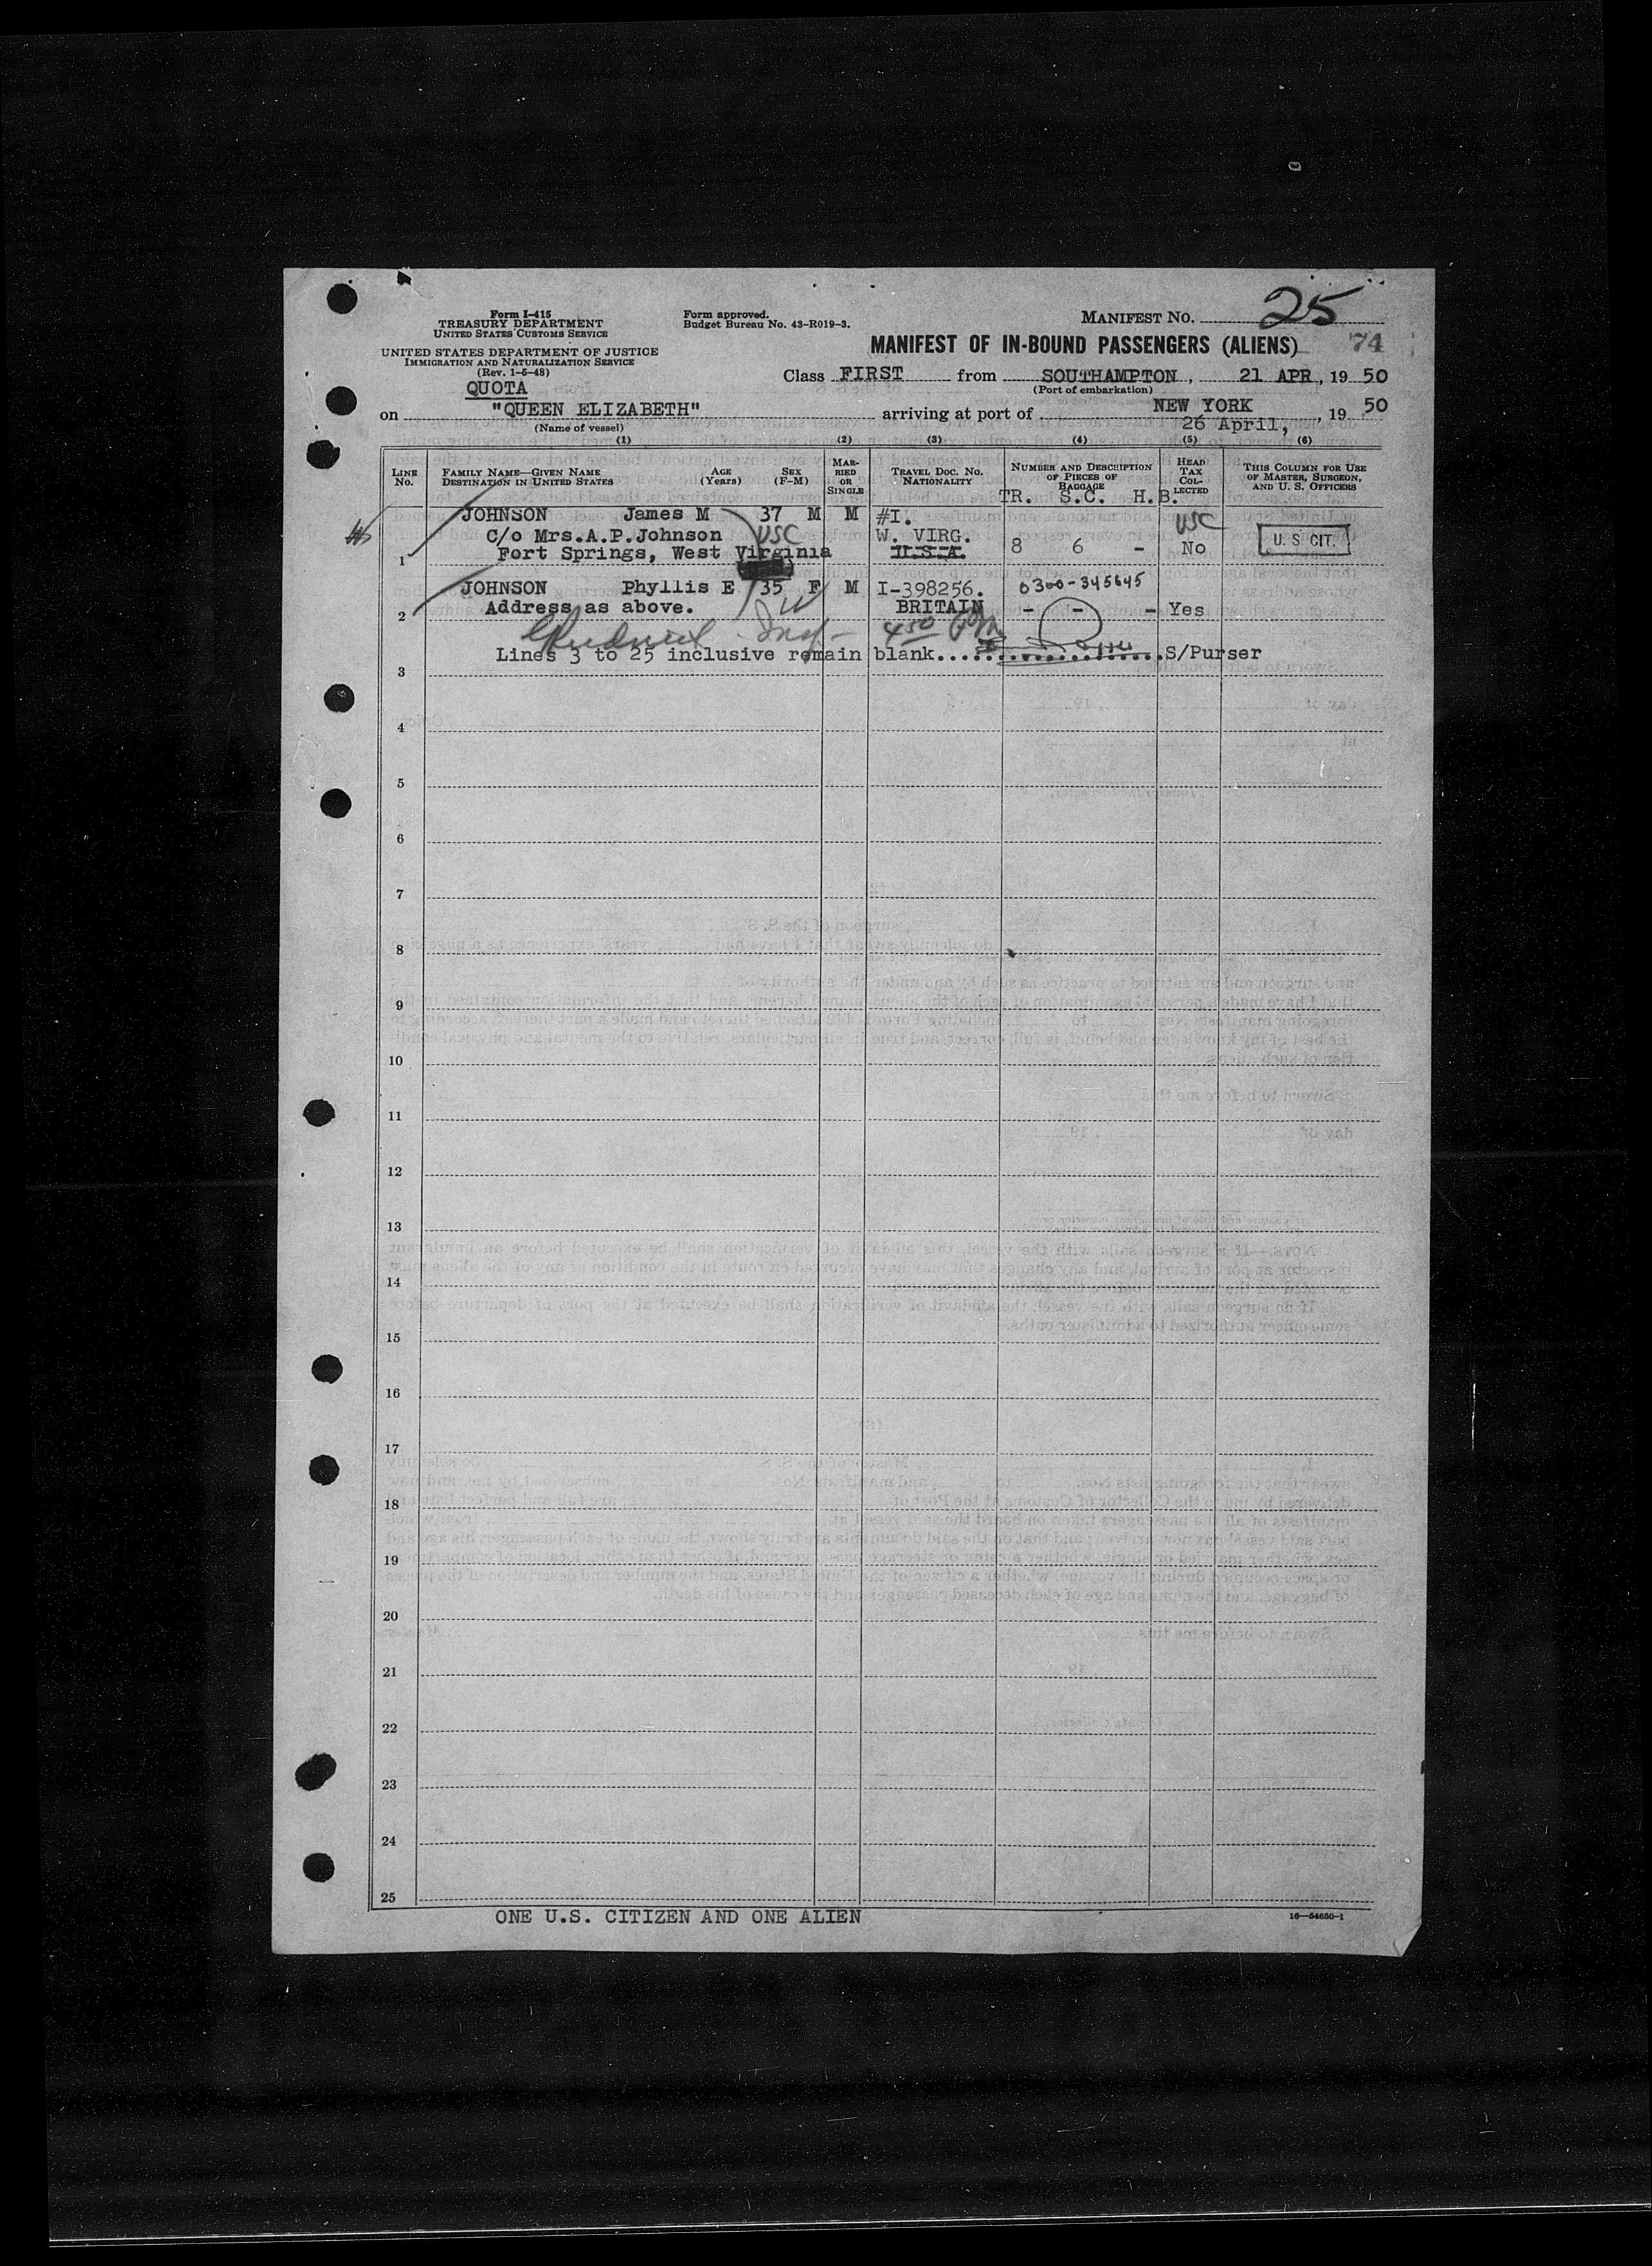 Form I-415
TREASURY DEPARTMENT
UNITED STATES CUSTOMS SERVICE
UNITED STATES DEPARTMENT OF JUSTICE
IMMIGRATION AND NATURALIZATION SERVICE
(Rev. 1-5-48)
QUOTA
Form approved.
Budget Bureau No. 43-R019-3.
MANIFEST NO. 25
MANIFEST OF IN-BOUND PASSENGERS (ALIENS) 74
Class FIRST from SOUTHAMPTON, 21 APR, 19 50
(Port of embarkation)
on "QUEEN ELIZABETH" arriving at port of NEW YORK, 19 50
(Name of vessel)
26 April,
(1) (2) (3) (4) (5) (6)
LINE No. FAMILY NAME—GIVEN NAME DESTINATION IN UNITED STATES AGE (Years) SEX (F-M) MARRIED OR SINGLE TRAVEL DOC. NO. NATIONALITY NUMBER AND DESCRIPTION OF PIECES OF BAGGAGE HEAD TAX COLLECTED THIS COLUMN FOR USE OF MASTER, SURGEON, AND U. S. OFFICERS
TR. S.C. H.B.
JOHNSON James M 37 M M #I. USC
C/o Mrs.A.P.Johnson USC W. VIRG. U. S. CIT.
1 Fort Springs, West Virginia U.S.A. 8 6 - No
JOHNSON Phyllis E 35 F M I-398256. 0300-345645
2 Address as above. BRITAIN - - - Yes
Lines 3 to 25 inclusive remain blank....................S/Purser
3
4
5
6
7
8
9
10
11
12
13
14
15
16
17
18
19
20
21
22
23
24
25
ONE U.S. CITIZEN AND ONE ALIEN
16—54650-1